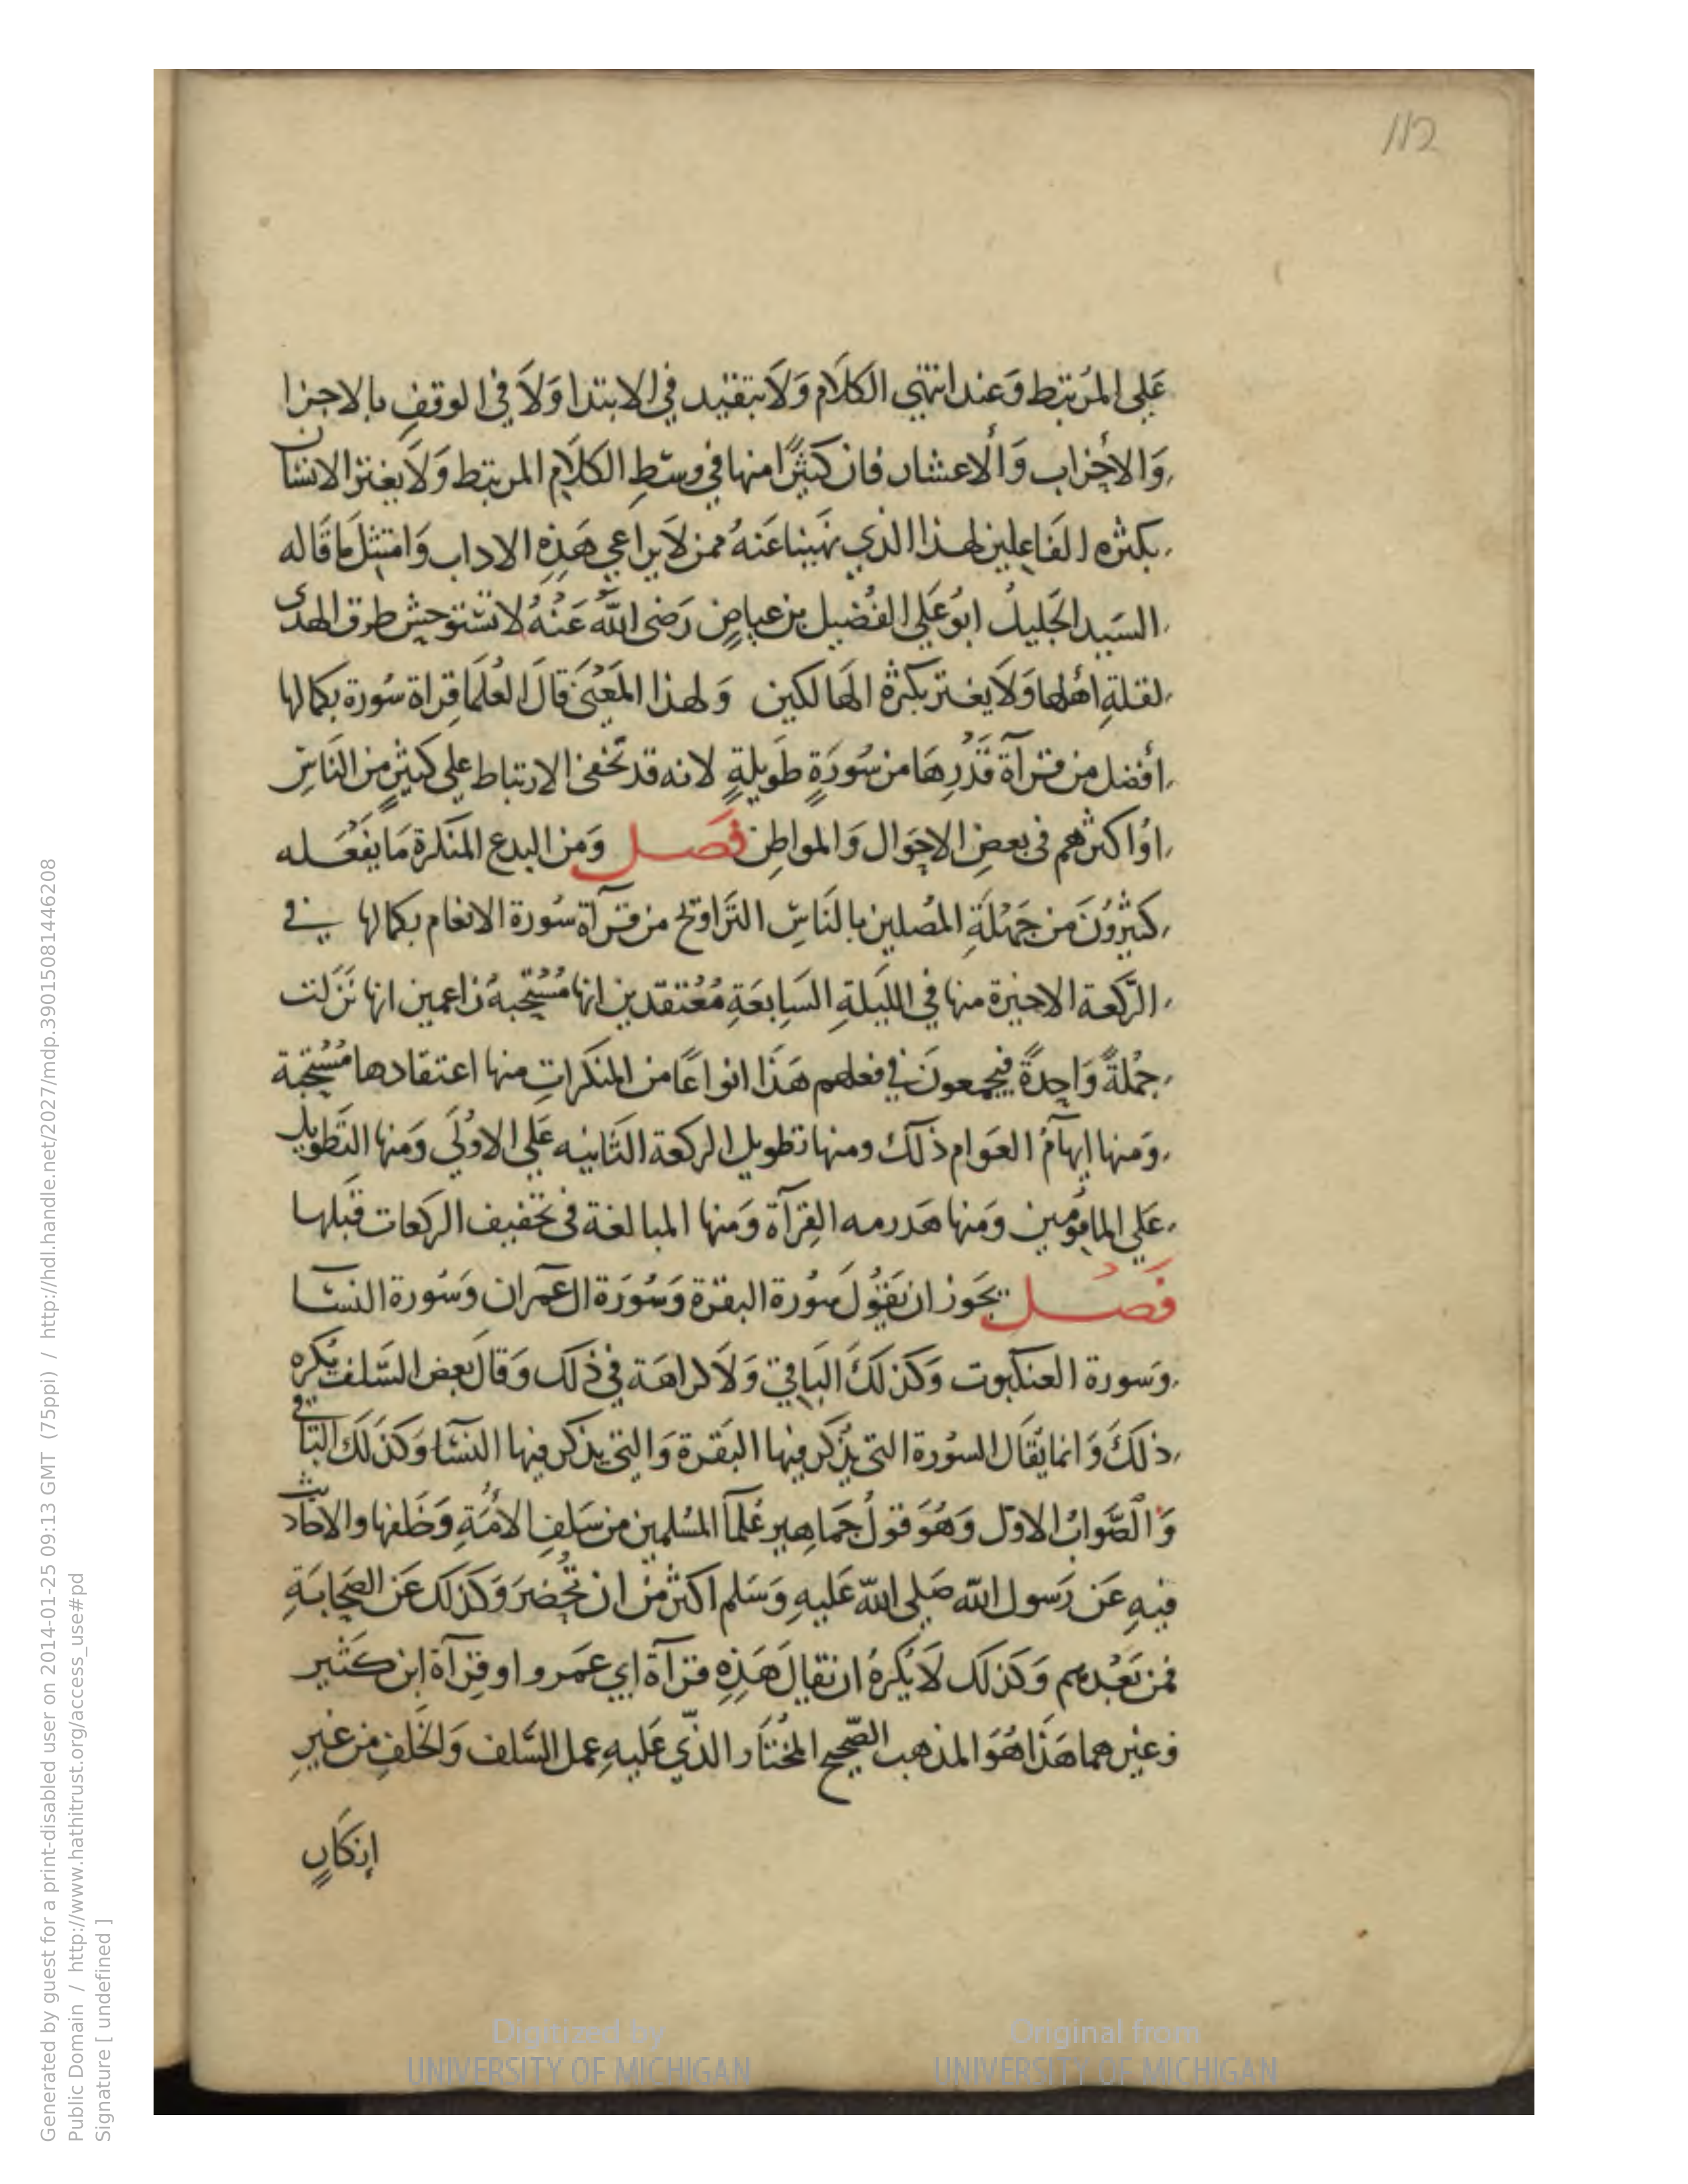 112
عَلي المُرتبط وَعند انتهي الكلَام وَلَا يتقيد في الابتدا وَلَا في الوقفِ بالاجزا
وَالاحْزاب وَالْاعشار فان كَثيْرًا منها في وسَطِ الكلَام المرتبط وَلَا يغتر الانسان
بكثره الفَاعِلين لهذا الذي نهَيناعَنهُ ممن لَا يراعي هَذِهِ الاداب وَامتثل مَا قَاله
السَيد الجَليلُ ابُو عَلي الفُضيل بن عياضٍ رَضي اللَّهُ عَنْهُ لا تستوحش طرق الهدى
لقلةِ اهْلها وَلَا يغتر بكثرة الهَالكين وَلهذا المَعْنَى قالَ العُلَمَا قِراة سُورة بكمالها
افْضل من قرآة قَدْرِهَا من سُورَةٍ طَويلةٍ لانه قد تخفى الارتباط علي كثيرٍ من النَاسِ
اوْ اكثرهم في بعضِ الاحوَال وَالمواطِن فَصـل وَمن البدع المنَكرة مَا يفَعْـله
كثيرُونَ من جَهَلَةِ المُصلين بالنَاسِ التَراويح من قرآة سُورة الانعام بكمالها في
الرَكعة الاخيرة منها في الليَلةِ السَابعَةِ مُعْتقدين انها مُسْتحبهُ زاعمين انها نَزَلت
جمْلةً وَاحِدةً فيجمعونَ في فعلهم هَذَا انواعًا من المنكَراتِ منها اعتقادها مُسْتحبة
وَمنها ايهَامُ العَوام ذلكَ ومنها تطويل الركعة الثَانيه عَلي الاوْلَي وَمنها التَطويل
عَلي المامُومين وَمنها هَدرمه القِرآة وَمنها المبالغة في تخفيف الركَعات قبَلها
فَصـل يجَوز ان يَقوُلَ سُورة البقرة وَسُورَة ال عمَران وَسُورة النسَا
وَسورة العنكبوت وَكذلكَ البَاقي وَلَا كراهَة في ذلك وَقالَ بَعض السَلف يُكره
ذلكَ وَانما يُقَال السوُرة التي يُذْكر فيها البَقرة وَالتي يذكر فيها النسَا وَكذلَك الباقي
وَالصَّوابُ الاوّل وَهُوَ قولُ جمَاهِير عُلَمآ المسُلمين من سَلفِ الاُمَةِ وَخَلفها والاحاديث
فيهِ عَن رَسول اللّه صَلي اللّه عَليهِ وَسَلم اكثر مْن ان تُحْضرَ وَكذلَك عَن الصحَابَةِ
فمن بَعْدهم وَكذلك لَا يُكرهُ ان يقال هَذِهِ قرآة ابي عمَرو او قرآة ابن كثير
وغيْرهما هَذَا هُوَ المذهب الصّحيح المخُتَار الذّي عَليهِ عمل السَلف وَالخَلفِ من غيرِ
اِنكَارٍ
Generated by guest for a print-disabled user on 2014-01-25 09:13 GMT (75ppi) / http://hdl.handle.net/2027/mdp.39015081446208
Public Domain / http://www.hathitrust.org/access_use#pd
Signature [ undefined ]
Digitized by
UNIVERSITY OF MICHIGAN
Original from
UNIVERSITY OF MICHIGAN